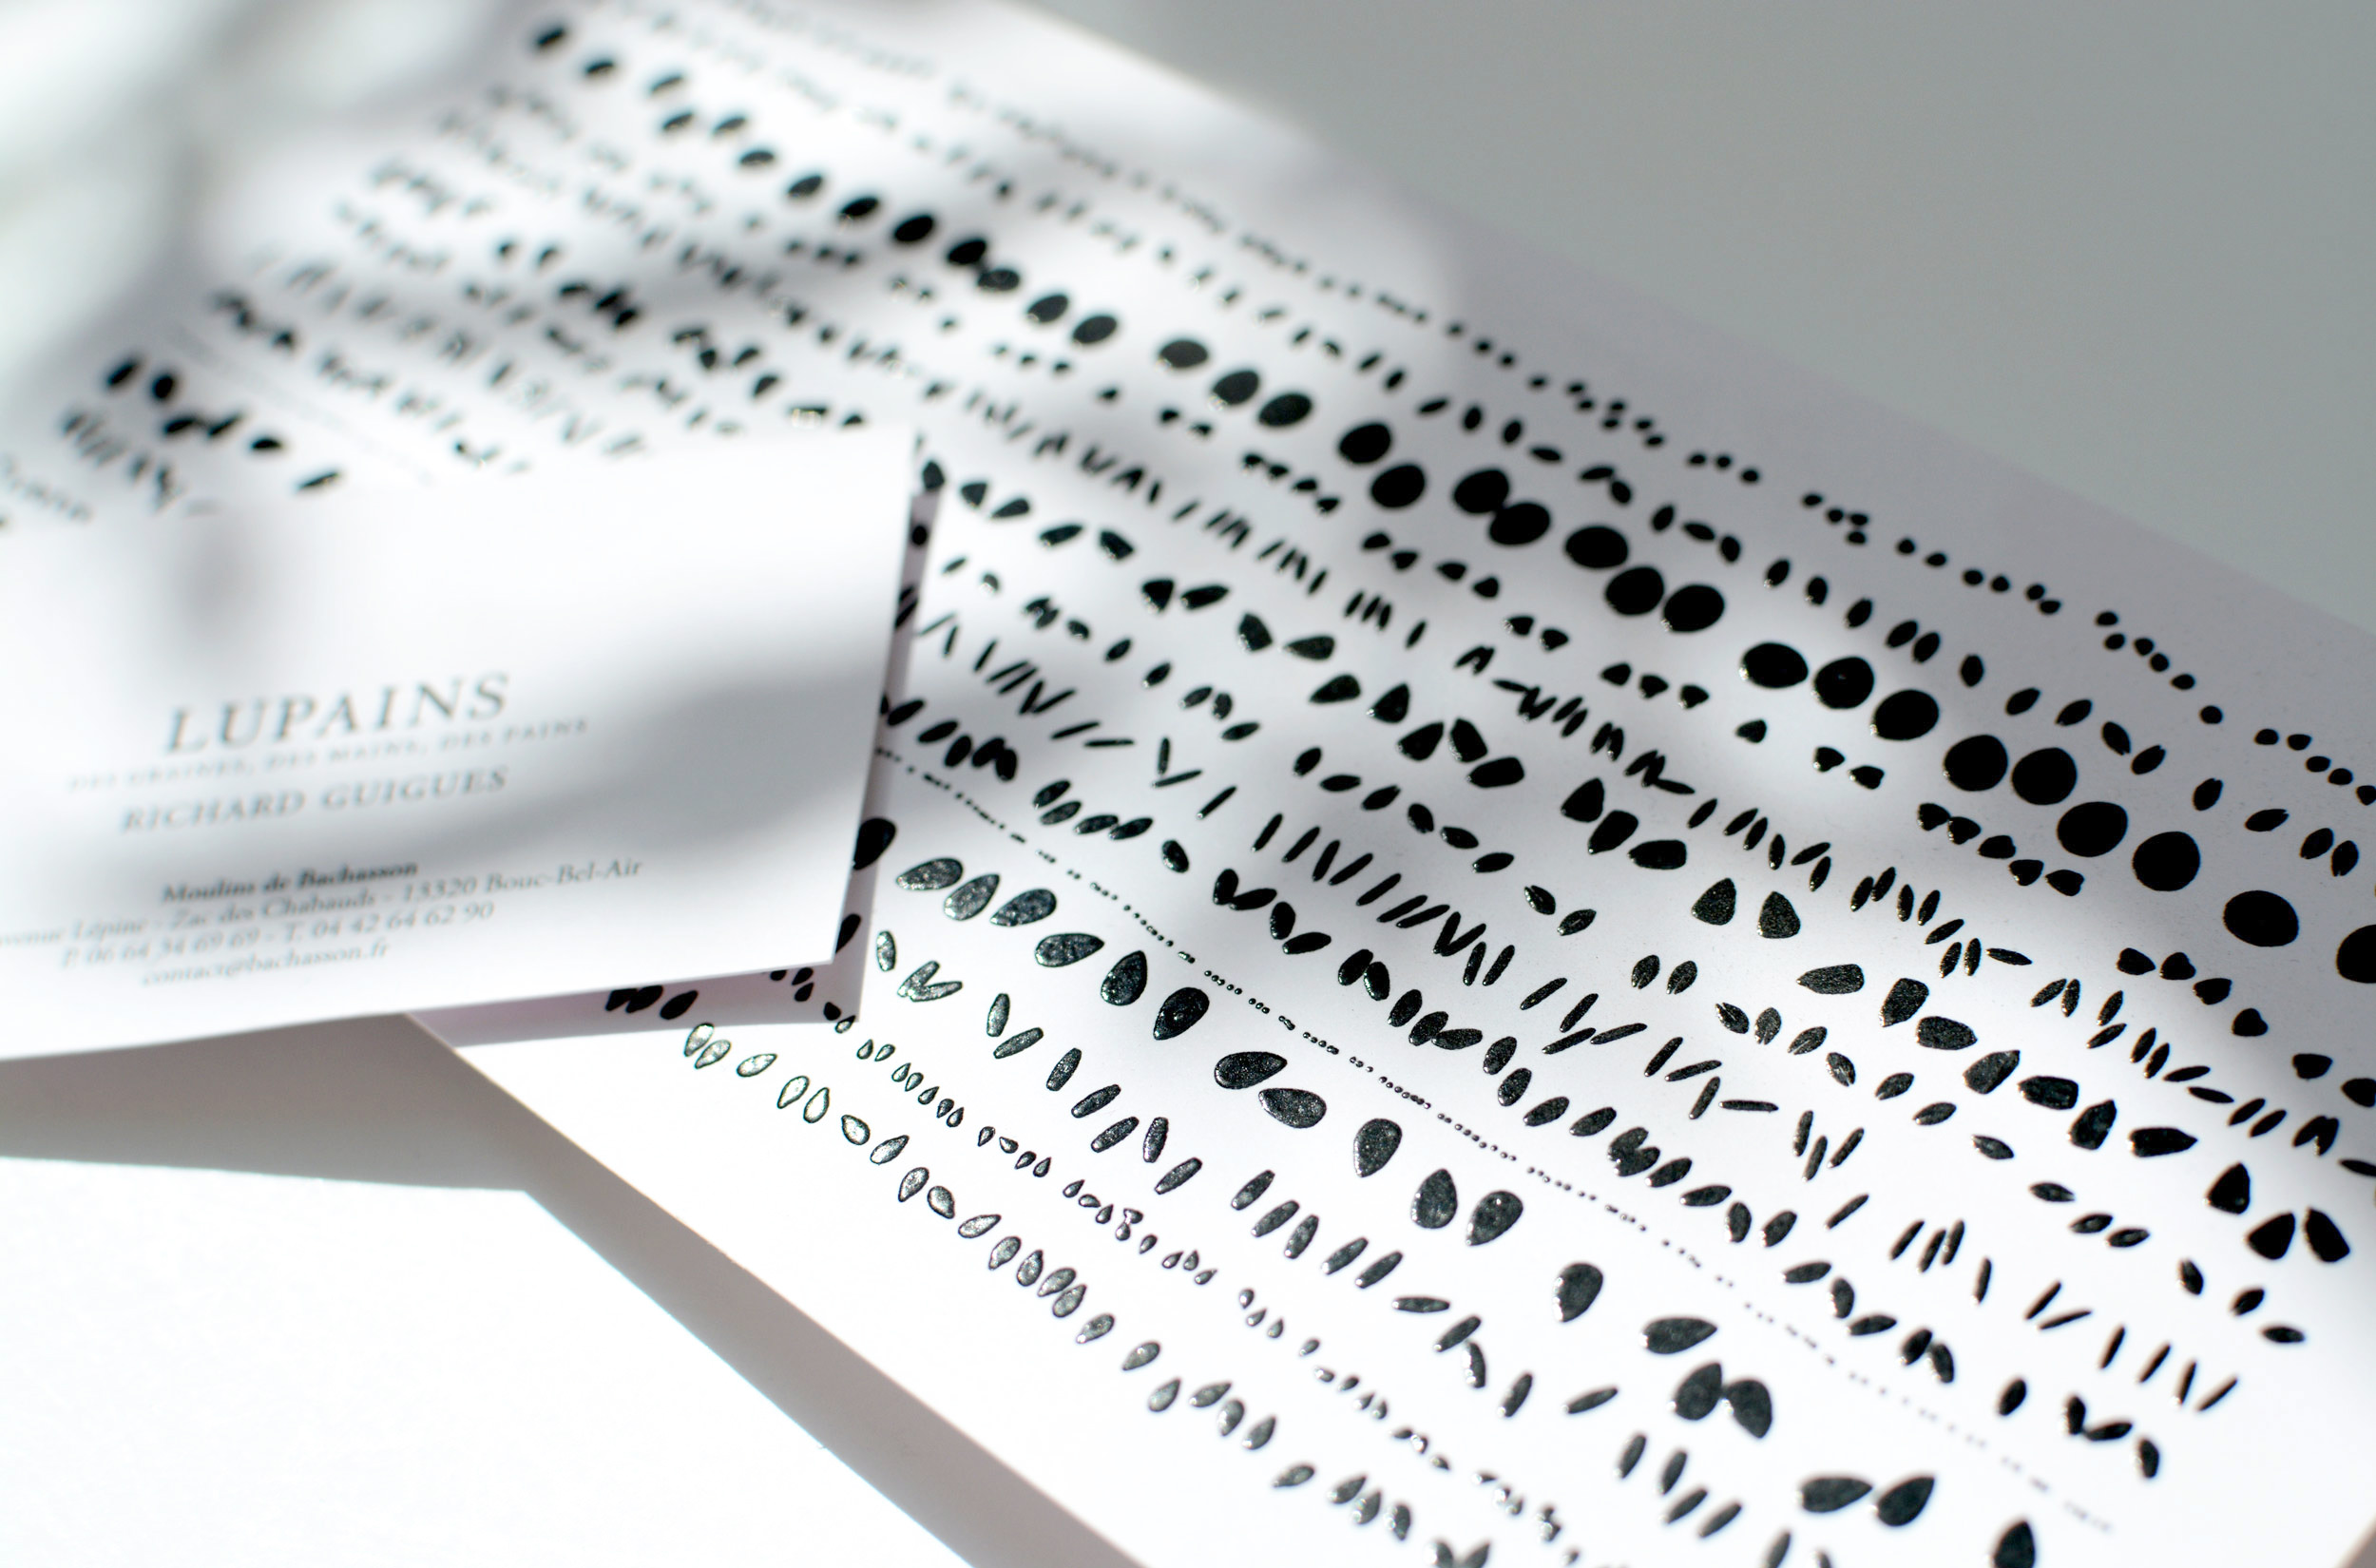 LUPAINS
DES GRAINES, DES MAINS, DES PAINS
RICHARD GUIGUES
Moulins de Bachasson
Lépine - Zac des Chabauds - 13320 Bouc-Bel-Air
P. 06 64 34 69 69 - T. 04 42 64 62 90
contact@bachasson.fr